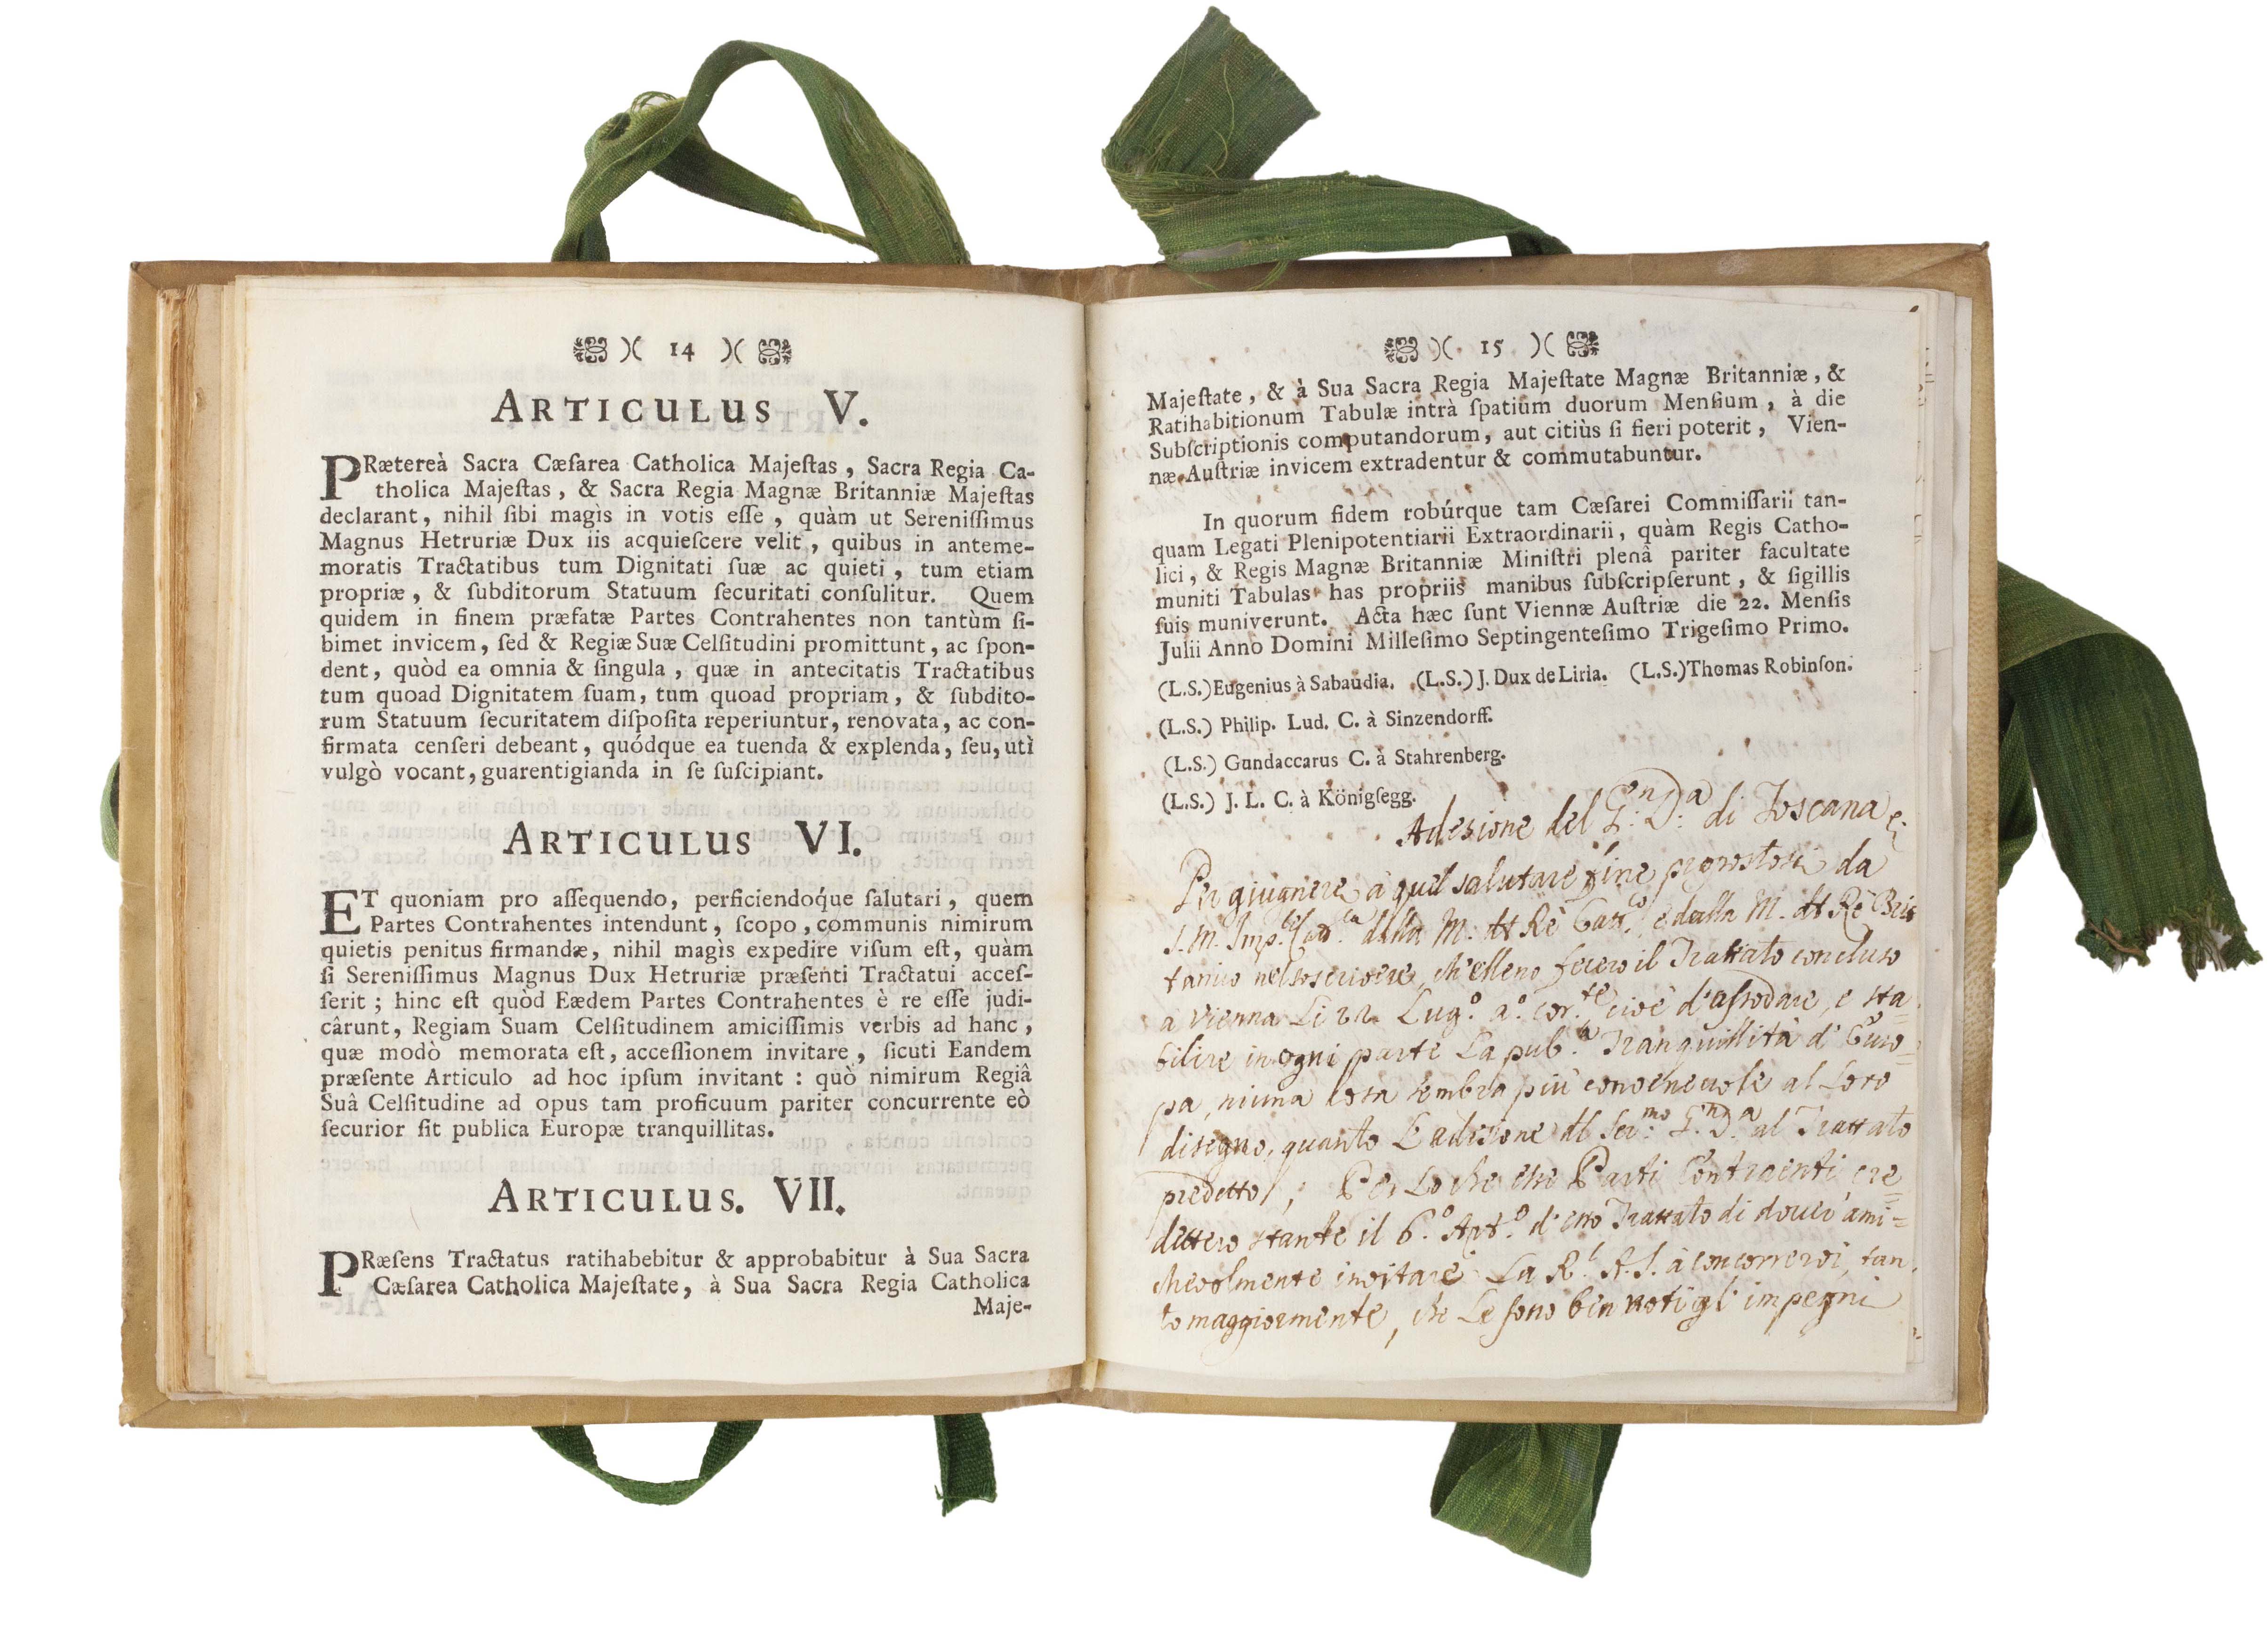 14
ARTICULUS V.
PRætereà Sacra Cæſarea Catholica Majeſtas, Sacra Regia Ca-
tholica Majeſtas, & Sacra Regia Magnæ Britanniæ Majeſtas
declarant, nihil ſibi magìs in votis eſſe, quàm ut Sereniſſimus
Magnus Hetruriæ Dux iis acquieſcere velit, quibus in anteme-
moratis Tractatibus tum Dignitati ſuæ ac quieti, tum etiam
propriæ, & ſubditorum Statuum ſecuritati conſulitur. Quem
quidem in finem præfatæ Partes Contrahentes non tantùm ſi-
bimet invicem, ſed & Regiæ Suæ Celſitudini promittunt, ac ſpon-
dent, quòd ea omnia & ſingula, quæ in antecitatis Tractatibus
tum quoad Dignitatem ſuam, tum quoad propriam, & ſubdito-
rum Statuum ſecuritatem diſpoſita reperiuntur, renovata, ac con-
firmata cenſeri debeant, quódque ea tuenda & explenda, ſeu, utì
vulgò vocant, guarentigianda in ſe ſuſcipiant.
ARTICULUS VI.
ET quoniam pro aſſequendo, perficiendoq́ue ſalutari, quem
Partes Contrahentes intendunt, ſcopo, communis nimirum
quietis penitus firmandæ, nihil magìs expedire viſum eſt, quàm
ſi Sereniſſimus Magnus Dux Hetruriæ præſenti Tractatui acceſ-
ſerit; hinc eſt quòd Eædem Partes Contrahentes è re eſſe judi-
cârunt, Regiam Suam Celſitudinem amiciſſimis verbis ad hanc,
quæ modò memorata eſt, acceſſionem invitare, ſicuti Eandem
præſente Articulo ad hoc ipſum invitant: quò nimirum Regiâ
Suâ Celſitudine ad opus tam proficuum pariter concurrente eò
ſecurior ſit publica Europæ tranquillitas.
ARTICULUS. VII.
PRæſens Tractatus ratihabebitur & approbabitur à Sua Sacra
Cæſarea Catholica Majeſtate, à Sua Sacra Regia Catholica
Maje-
15
Majeſtate, & à Sua Sacra Regia Majeſtate Magnæ Britanniæ, &
Ratihabitionum Tabulæ intrà ſpatium duorum Menſium, à die
Subſcriptionis computandorum, aut citiùs ſi fieri poterit, Vien-
næ Auſtriæ invicem extradentur & commutabuntur.
In quorum fidem robúrque tam Cæſarei Commiſſarii tan-
quam Legati Plenipotentiarii Extraordinarii, quàm Regis Catho-
lici, & Regis Magnæ Britanniæ Miniſtri plenâ pariter facultate
muniti Tabulas has propriis manibus ſubſcripſerunt, & ſigillis
ſuis muniverunt. Acta hæc ſunt Viennæ Auſtriæ die 22. Menſis
Julii Anno Domini Milleſimo Septingenteſimo Trigeſimo Primo.
(L.S.) Eugenius à Sabaudia. (L.S.) J. Dux de Liria. (L.S.) Thomas Robinſon.
(L.S.) Philip. Lud. C. à Sinzendorff.
(L.S.) Gundaccarus C. à Stahrenberg.
(L.S.) J. L. C. à Königſegg.
Adesione del G.n D.a di Toscana
Per giugnere à quel salutare fine propostosi da
S. M. Imp.le dalla M. del Rè Catt.co e dalla M. del Rè Bri
tanico nel soscrivere, ch'elleno fecero il Trattato concluso
a Vienna Li 22 Lug.o a.o cor.te cioè d'assodare, e sta-
bilire in ogni parte La pub.ca Tranquillità d'Euro-
pa, niuna cosa sembra più convenevole al Loro
disegno, quanto L'adesione del Ser.mo G.n D.a al Trattato
predetto; Per Lo che esse Parti Contraenti cre-
dettero stante il 6.o Art.o d'etto Trattato di dover ami-
chevolmente invitare La R.l A. S. à concorrervi, tan
to maggiormente, che Le sono ben noti gl'impegni